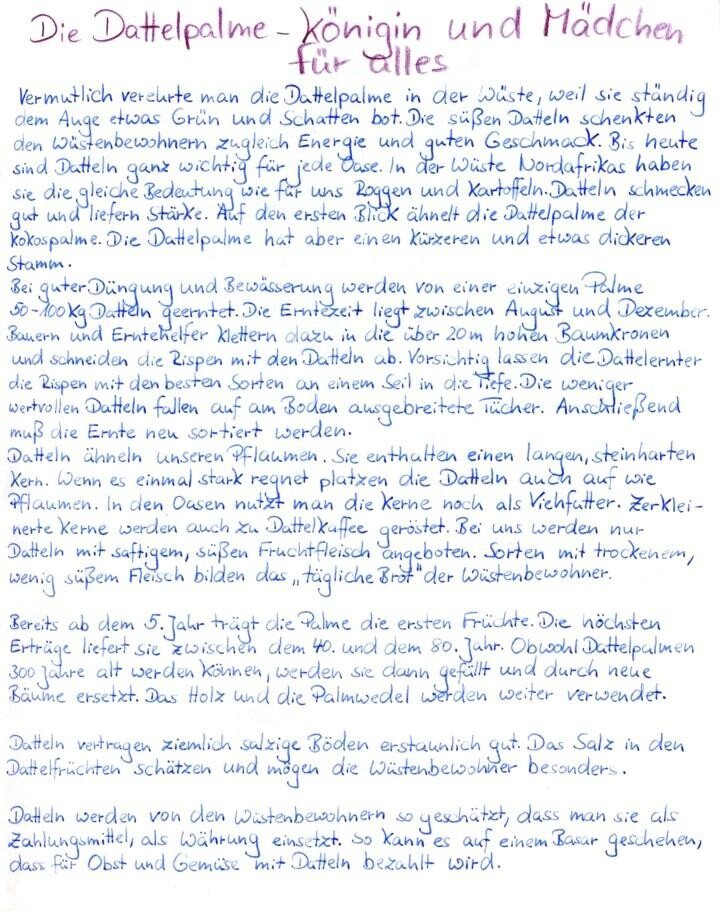 Die Dattelpalme - Königin und Mädchen
für alles
Vermutlich verehrte man die Dattelpalme in der Wüste, weil sie ständig
dem Auge etwas Grün und Schatten bot. Die süßen Datteln schenkten
den Wüstenbewohnern zugleich Energie und guten Geschmack. Bis heute
sind Datteln ganz wichtig für jede Oase. In der Wüste Nordafrikas haben
sie die gleiche Bedeutung wie für uns Roggen und Kartoffeln. Datteln schmecken
gut und liefern Stärke. Auf den ersten Blick ähnelt die Dattelpalme der
Kokospalme. Die Dattelpalme hat aber einen kürzeren und etwas dickeren
Stamm.
Bei guter Düngung und Bewässerung werden von einer einzigen Palme
50-100 kg Datteln geerntet. Die Erntezeit liegt zwischen August und Dezember.
Bauern und Erntehelfer klettern dazu in die über 20m hohen Baumkronen
und schneiden die Rispen mit den Datteln ab. Vorsichtig lassen die Dattelernter
die Rispen mit den besten Sorten an einem Seil in die Tiefe. Die weniger
wertvollen Datteln fallen auf am Boden ausgebreitete Tücher. Anschließend
muß die Ernte neu sortiert werden.
Datteln ähneln unseren Pflaumen. Sie enthalten einen langen, steinharten
Kern. Wenn es einmal stark regnet platzen die Datteln auch auf wie
Pflaumen. In den Oasen nutzt man die Kerne noch als Viehfutter. Zerklei-
nerte Kerne werden auch zu Dattelkaffee geröstet. Bei uns werden nur
Datteln mit saftigem, süßen Fruchtfleisch angeboten. Sorten mit trockenem,
wenig süßem Fleisch bilden das „tägliche Brot" der Wüstenbewohner.
Bereits ab dem 5. Jahr trägt die Palme die ersten Früchte. Die höchsten
Erträge liefert sie zwischen dem 40. und dem 80. Jahr. Obwohl Dattelpalmen
300 Jahre alt werden können, werden sie dann gefällt und durch neue
Bäume ersetzt. Das Holz und die Palmwedel werden weiter verwendet.
Datteln vertragen ziemlich salzige Böden erstaunlich gut. Das Salz in den
Dattelfrüchten schätzen und mögen die Wüstenbewohner besonders.
Datteln werden von den Wüstenbewohnern so geschätzt, dass man sie als
Zahlungsmittel, als Währung einsetzt. So kann es auf einem Basar geschehen,
dass für Obst und Gemüse mit Datteln bezahlt wird.